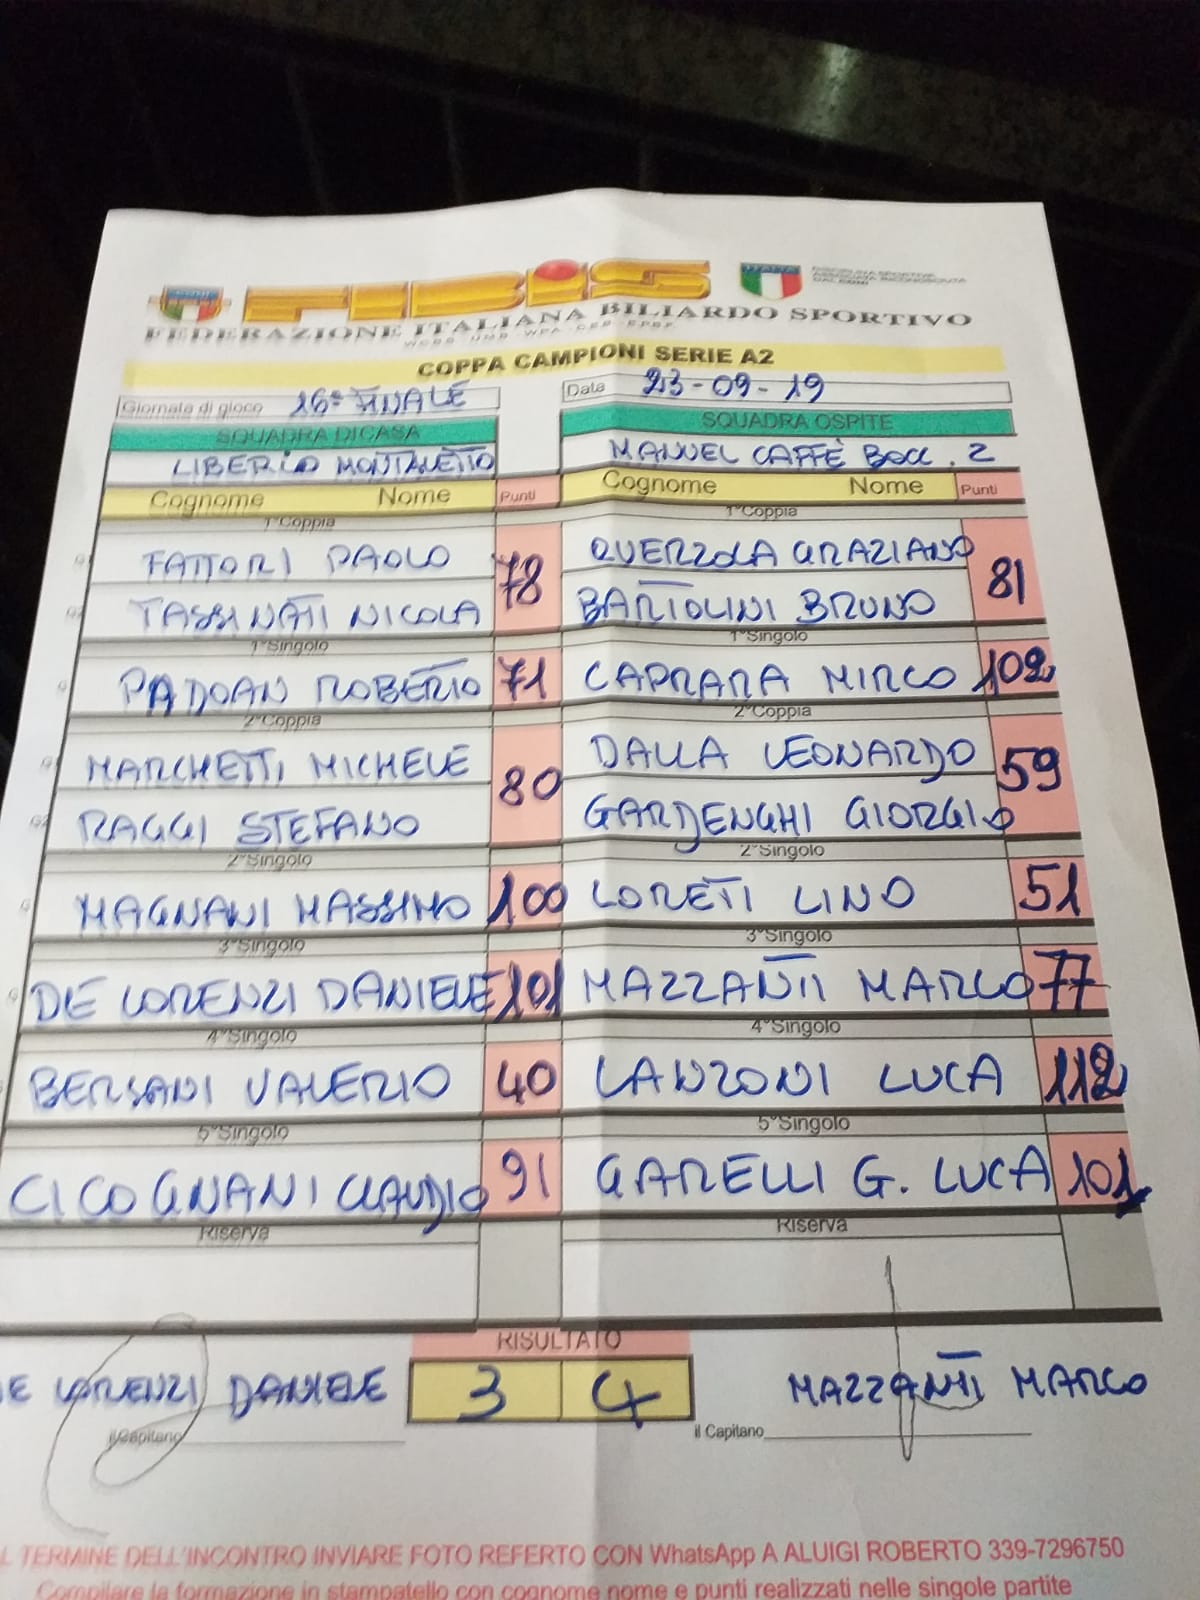 FIBiS
ITALIA
FEDERAZIONE ITALIANA BILIARDO SPORTIVO
COPPA CAMPIONI SERIE A2
Giornata di gioco 16° FINALE Data 23-09-19
SQUADRA DI CASA SQUADRA OSPITE
MANUEL CAFFÈ BOCC. 2
Cognome Nome Punti Cognome Nome Punti
1°Coppia 1°Coppia
FATTORI PAOLO 78 QUERZOLA GRAZIANO 81
TASSINATI NICOLA BARTOLINI BRUNO
1°Singolo 1°Singolo
PADOAN ROBERTO 71 CAPRARA MIRCO 102
2°Coppia 2°Coppia
MARCHETTI MICHELE 80 DALLA LEONARDO 59
RAGGI STEFANO GARDENGHI GIORGIO
2°Singolo 2°Singolo
MAGNANI MASSIMO 100 LORETI LINO 51
3°Singolo 3°Singolo
DE LORENZI DANIELE 101 MAZZANTI MARCO 77
4°Singolo 4°Singolo
BERSANI VALERIO 40 LANZONI LUCA 112
5°Singolo 5°Singolo
CICOGNANI CLAUDIO 91 GARELLI G. LUCA 101
Riserva Riserva
RISULTATO
E LORENZI DANIELE 3 4 MAZZANTI MARCO
il Capitano il Capitano
L TERMINE DELL'INCONTRO INVIARE FOTO REFERTO CON WhatsApp A ALUIGI ROBERTO 339-7296750
Compilare la formazione in stampatello con cognome nome e punti realizzati nelle singole partite